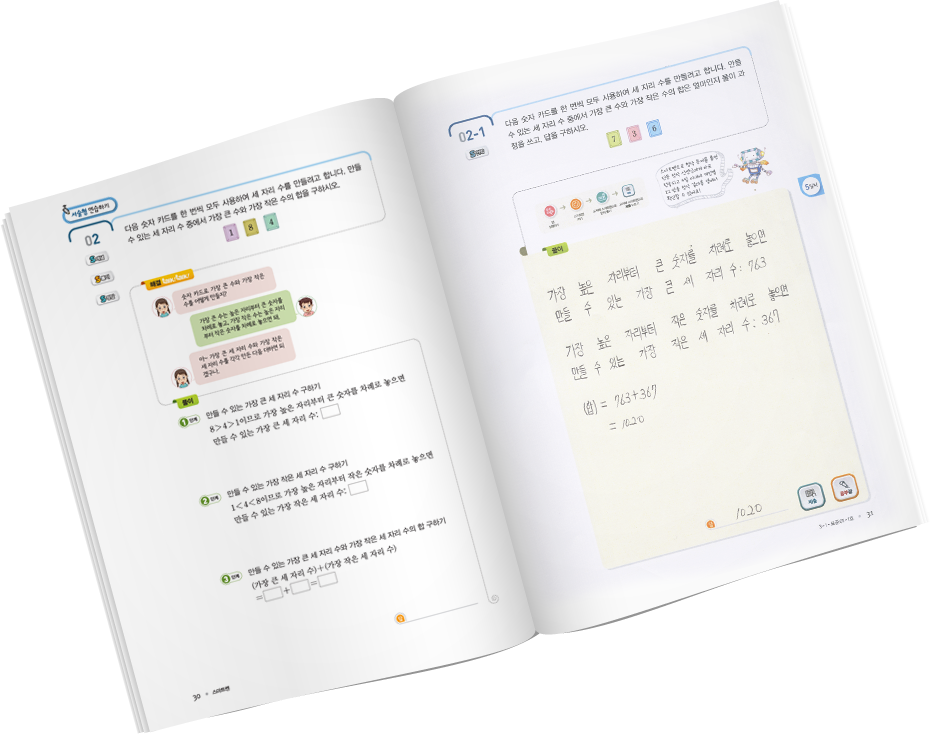 서술형 연습하기
02
다음 숫자 카드를 한 번씩 모두 사용하여 세 자리 수를 만들려고 합니다. 만들
수 있는 세 자리 수 중에서 가장 큰 수와 가장 작은 수의 합을 구하시오.
1 8 4
해결
숫자 카드로 가장 큰 수와 가장 작은
수를 어떻게 만들지?
가장 큰 수는 높은 자리부터 큰 숫자를
차례로 놓고, 가장 작은 수는 높은 자리
부터 작은 숫자를 차례로 놓으면 돼.
아~ 가장 큰 세 자리 수와 가장 작은
세 자리 수를 각각 만든 다음 더하면 되
겠구나.
풀이
1 단계 만들 수 있는 가장 큰 세 자리 수 구하기
8>4>1이므로 가장 높은 자리부터 큰 숫자를 차례로 놓으면
만들 수 있는 가장 큰 세 자리 수:
2 단계 만들 수 있는 가장 작은 세 자리 수 구하기
1<4<8이므로 가장 높은 자리부터 작은 숫자를 차례로 놓으면
만들 수 있는 가장 작은 세 자리 수:
3 단계 만들 수 있는 가장 큰 세 자리 수와 가장 작은 세 자리 수의 합 구하기
(가장 큰 세 자리 수)+(가장 작은 세 자리 수)
= + =
답
30 스마트펜
02-1
다음 숫자 카드를 한 번씩 모두 사용하여 세 자리 수를 만들려고 합니다. 만들
수 있는 세 자리 수 중에서 가장 큰 수와 가장 작은 수의 합은 얼마인지 풀이 과
정을 쓰고, 답을 구하시오.
7 3 6
풀이
가장 높은 자리부터 큰 숫자를 차례로 놓으면
만들 수 있는 가장 큰 세 자리 수 : 763
가장 높은 자리부터 작은 숫자를 차례로 놓으면
만들 수 있는 가장 작은 세 자리 수 : 367
(합) = 763+367
= 1020
답 1020
31